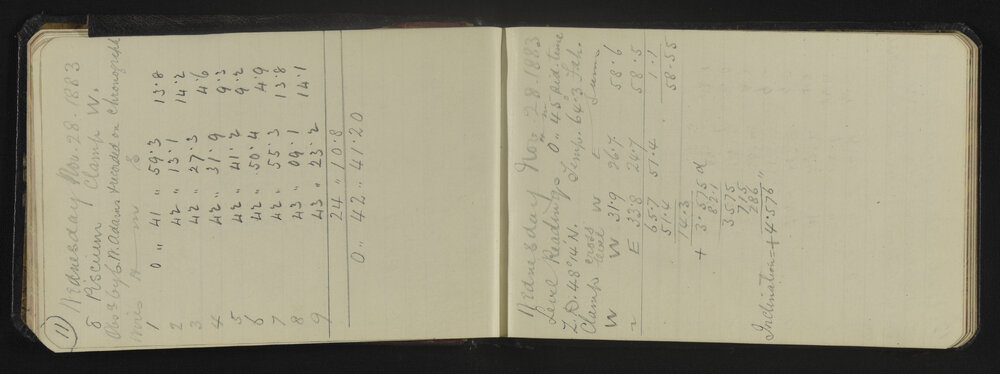 (11) Wednesday Nov. 28. 1883
δ Piscium Clamp W.
Obs'd by C. A. Adams & recorded on Chronograph
Wire h m s
1 0 " 41 " 59.3 13.8
2 42 " 13.1 14.2
3 42 " 27.3 4.6
4 42 " 31.9 9.3
5 42 " 41.2 9.2
6 42 " 50.4 4.9
7 42 " 55.3 13.8
8 43 " 09.1 14.1
9 43 " 23.2
24 " 10.8
0 " 42 " 41.20
Wednesday Nov 28. 1883
Level Readings 0 h 45 m sid. time
Z.D. 48° 14' N. Temp. 64.3 Fah.
Clamp cross level W E Sum
W W 31.9 26.7 58.6
" E 33.8 24.7 58.5
65.7 51.4 1.1
51.4 58.55
14.3
+ 3.575 d
82.1
3575
715
286
Inclination = + 4".576